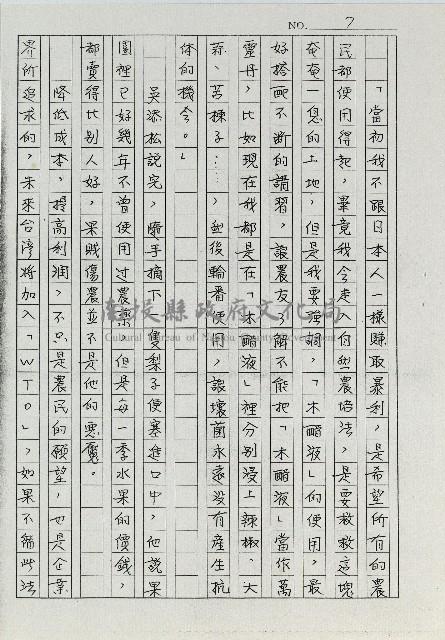 NO. 7
「當初我不跟日本人一樣賺取暴利，是希望所有的農
民都使用得起，畢竟我會走入自然農培法，是要救救這塊
奄奄一息的土地，但是我要強調，「木醋液」的使用，最
好搭配不斷的講習，讓農友了解不能把「木醋液」當作萬
靈丹，比如現在我都是在「木醋液」裡分別浸上辣椒、大
蒜、苦楝子……，然後輪番使用，讓壞菌永遠沒有產生抗
体的機會。」
吳添松說完，隨手摘下一隻梨子便塞進口中，他說果
園裡已好幾年不曾使用过農藥，但是每一季水果的價錢，
都賣得比別人好，果賤傷農並不是他的惡魔。
降低成本，提高利潤，不只是農民的願望，也是企業
界所追求的，未來台湾將加入「WTO」，如果不循此法
南投縣政府文化局
Cultural Bureau of Nantou County Government